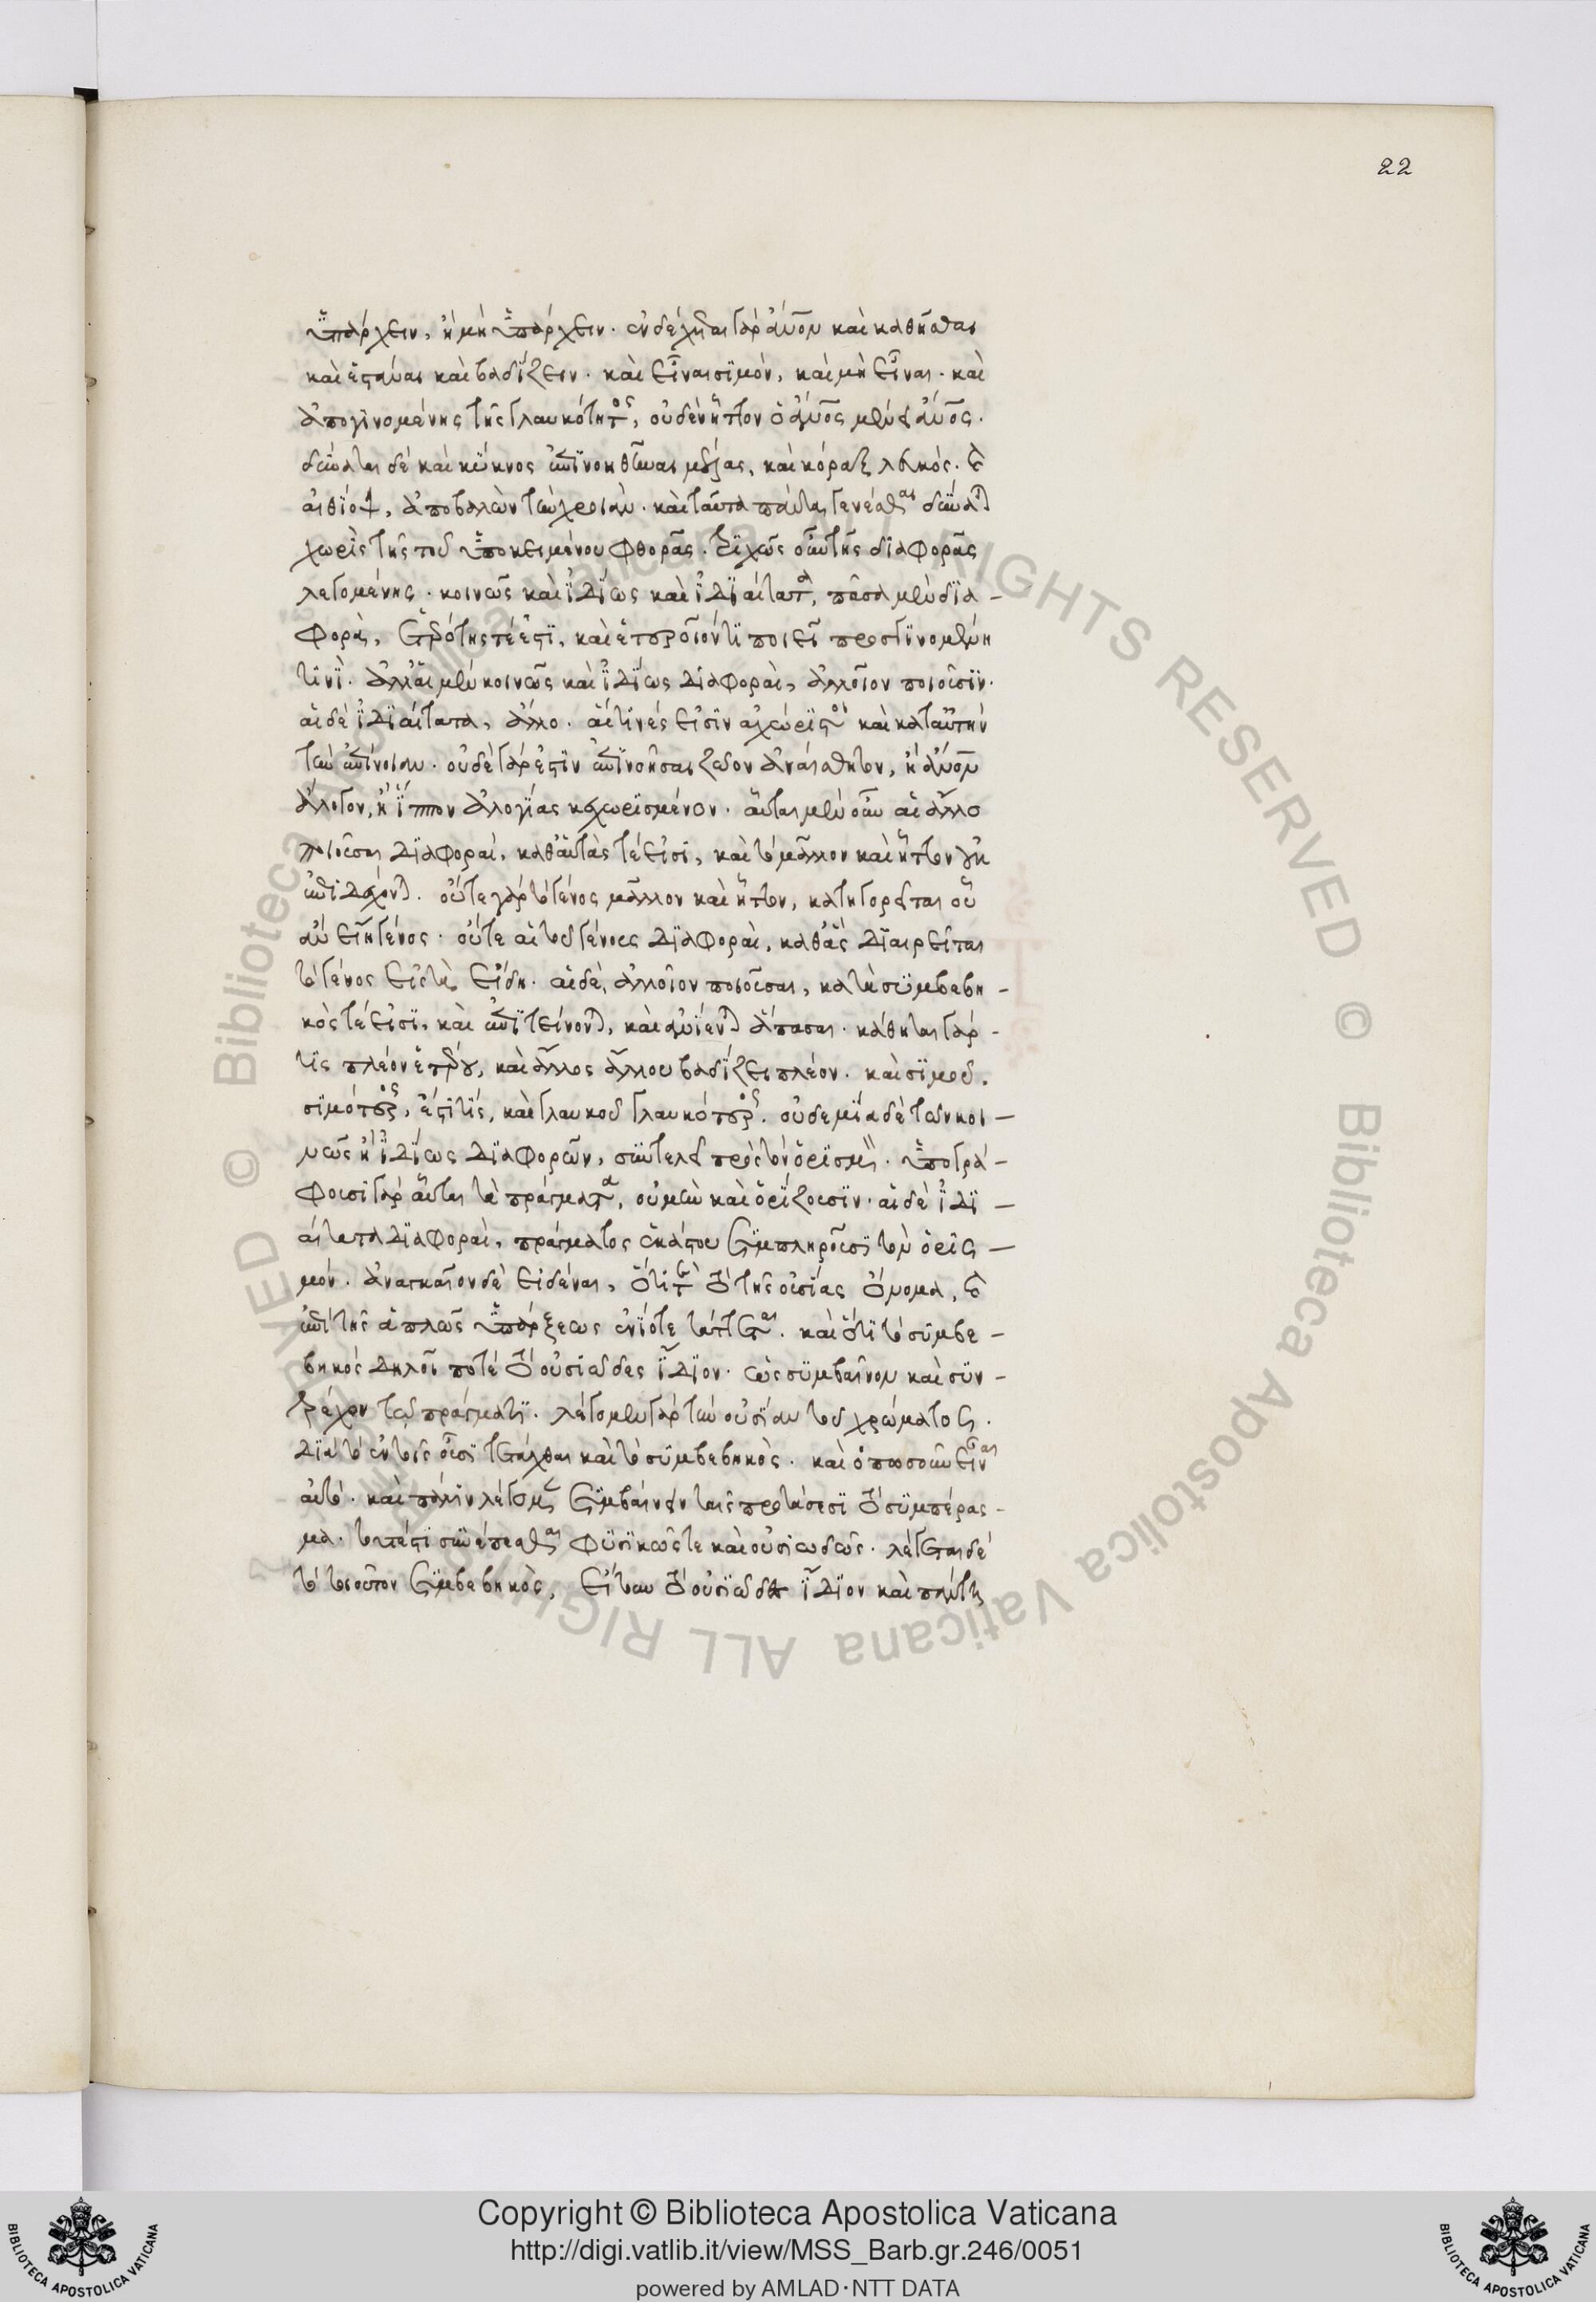 22
ὑπάρχειν, ἢ μὴ ὑπάρχειν. ἐνδέχεται γὰρ ἄνον καὶ καθῆσθαι
καὶ ἑστάναι καὶ βαδίζειν. καὶ εἶναι σιμὸν, καὶ μὴ εἶναι. καὶ
ἀπογινομένης τῆς γλαυκότητος, οὐδὲν ἧττον ὁ ἄνος μένει ἄνος.
δύναται δὲ καὶ κύκνος ἐπινοηθῆναι μέλας, καὶ κόραξ λευκός. καὶ
αἰθίοψ, ἀποβαλὼν τὴν χροιάν. καὶ ταῦτα πάντα γενέσθαι δύναται
χωρὶς τῆς τοῦ ὑποκειμένου φθορᾶς. τριχῶς οὖν τῆς διαφορᾶς
λεγομένης. κοινῶς καὶ ἰδίως καὶ ἰδιαίτατα, πᾶσα μὲν δια-
φορὰ, ἑτερότης τέ ἐστι, καὶ ἑτεροῖόν τι ποιεῖ προσγινομένη
τινί. ἀλλ' αἱ μὲν κοινῶς καὶ ἰδίως διαφοραὶ, ἀλλοῖον ποιοῦσιν.
αἱ δὲ ἰδιαίτατα, ἄλλο. αἵτινές εἰσιν ἀχώριστοι καὶ κατ' αὐτὴν
τὴν ἐπίνοιαν. οὐδὲ γάρ ἐστιν ἐπινοῆσαι ζῶον ἀναίσθητον, ἢ ἄνον
ἄλογον, ἢ ἵππον ἀλογίας κεχωρισμένον. αὗται μὲν οὖν αἱ ἄλλο
ποιοῦσαι διαφοραὶ, καθ' αὑτάς τέ εἰσι, καὶ τὸ μᾶλλον καὶ ἧττον οὐκ
ἐπιδέχονται. οὔτε γὰρ τὸ γένος μᾶλλον καὶ ἧττον, κατηγορεῖται οὗ
ἂν εἴη γένος. οὔτε αἱ τοῦ γένους διαφοραὶ, καθ' ἃς διαιρεῖται
τὸ γένος εἰς τὰ εἴδη. αἱ δὲ, ἀλλοῖον ποιοῦσαι, κατὰ συμβεβη-
κός τέ εἰσι, καὶ ἐπιτείνονται, καὶ ἀνίενται ἅπασαι. κάθηται γάρ -
τις πλέον ἑτέρου, καὶ ἄλλος ἄλλου βαδίζει πλέον. καὶ σιμοῦ.
σιμότερος, ἔστι τις, καὶ γλαυκοῦ γλαυκότερος. οὐδεμία δὲ τῶν κοι-
νῶς ἢ ἰδίως διαφορῶν, συντελεῖ πρὸς τὸν ὁρισμόν. ὑπογρά-
φουσι γὰρ αὗται τὰ πράγματα, οὐ μὴν καὶ ὁρίζουσιν. αἱ δὲ ἰδι-
αίτατα διαφοραὶ, πράγματος ἑκάστου συμπληροῦσι τὸν ὁρισ-
μόν. ἀναγκαῖον δὲ εἰδέναι, ὅτι τε τὸ τῆς οὐσίας ὄνομα, καὶ
ἐπὶ τῆς ἁπλῶς ὑπάρξεως ἐνίοτε τάττεται. καὶ ὅτι τὸ συμβε-
βηκὸς δηλοῖ ποτέ τὸ οὐσιῶδες ἴδιον. ὡς συμβαῖνον καὶ συν-
τρέχον τῷ πράγματι. λέγομεν γὰρ τὴν οὐσίαν τοῦ χρώματος.
διὰ τὸ ἐν τοῖς οὖσι τετάχθαι καὶ τὸ συμβεβηκὸς. καὶ ὁπωσοῦν εἶναι
αὐτό. καὶ πάλιν λέγομεν συμβαίνειν ταῖς προτάσεσι τὸ συμπέρασ-
μα. τουτέστι συνέπεσθαι φυσικῶς τε καὶ οὐσιωδῶς. λέγεται δέ
τὸ τοιοῦτον συμβεβηκὸς, εἴτουν τὸ οὐσιῶδες ἴδιον καὶ πάντη
Copyright © Biblioteca Apostolica Vaticana
http://digi.vatlib.it/view/MSS_Barb.gr.246/0051
powered by AMLAD·NTT DATA